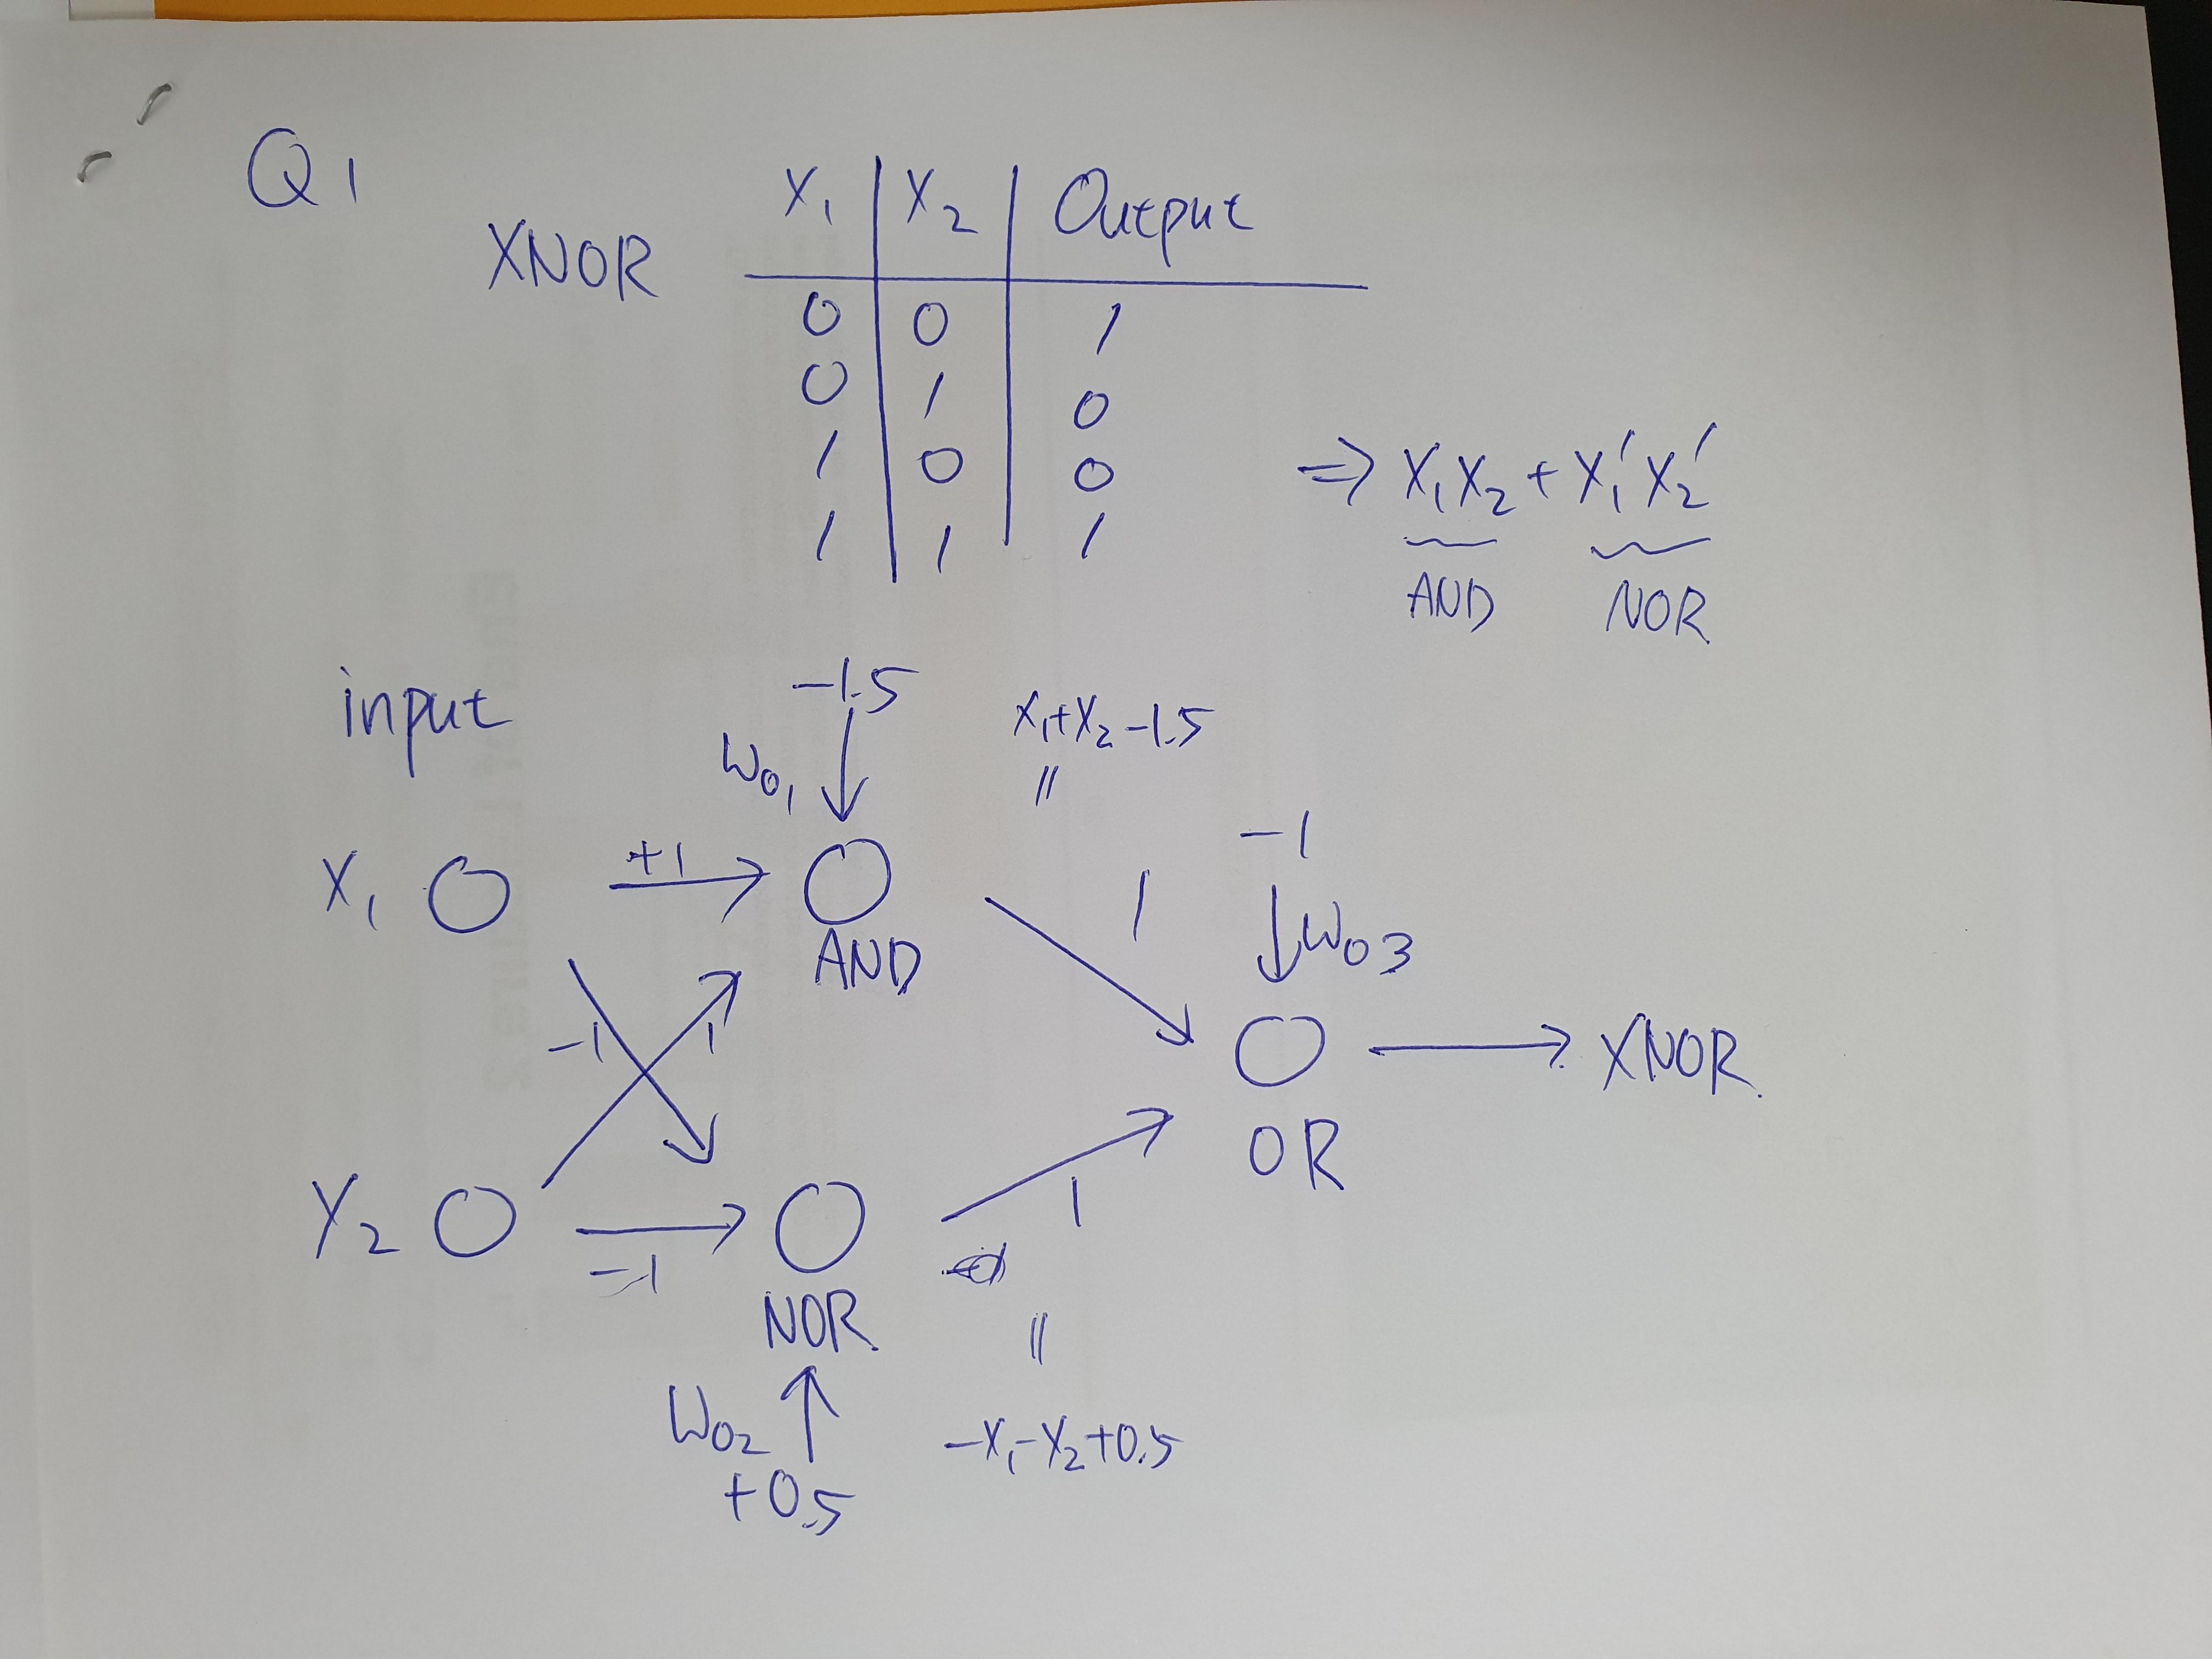 Q1
XNOR
X₁ X₂ Output
0 0 1
0 1 0
1 0 0
1 1 1
⇒ X₁X₂ + X₁'X₂'
AND NOR
input
-1.5
W₀₁
X₁+X₂-1.5
||
X₁ +1
AND
1
-1
W₀₃
-1 1
XNOR
OR
X₂ -1
NOR
1
||
W₀₂
+0.5
-X₁-X₂+0.5